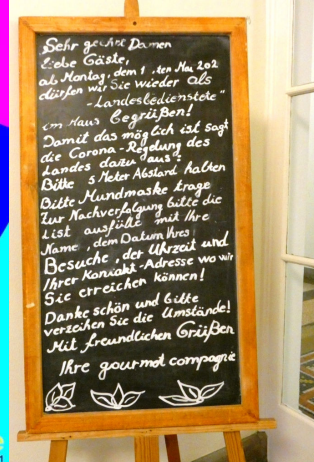 Sehr geehrte Damen
liebe Gäste,
ab Montag, dem 1 .ten Mai 202
dürfen wir Sie wieder als
-Landesbedienstete"
im Haus begrüßen!
Damit das möglich ist sagt
die Corona-Regelung des
Landes dazu aus":
Bitte 5 Meter Abstand halten
Bitte Mundmaske trage
Zur Nachverfolgung bitte die
List ausfülle mit Ihre
Name, dem Datum Ihres
Besuche, der Uhrzeit und
Ihrer Kontakt-Adresse wo wir
Sie erreichen können!
Danke schön und bitte
verzeihen Sie die Umstände!
Mit freundlichen Grüßen
Ihre gourmet compagnie